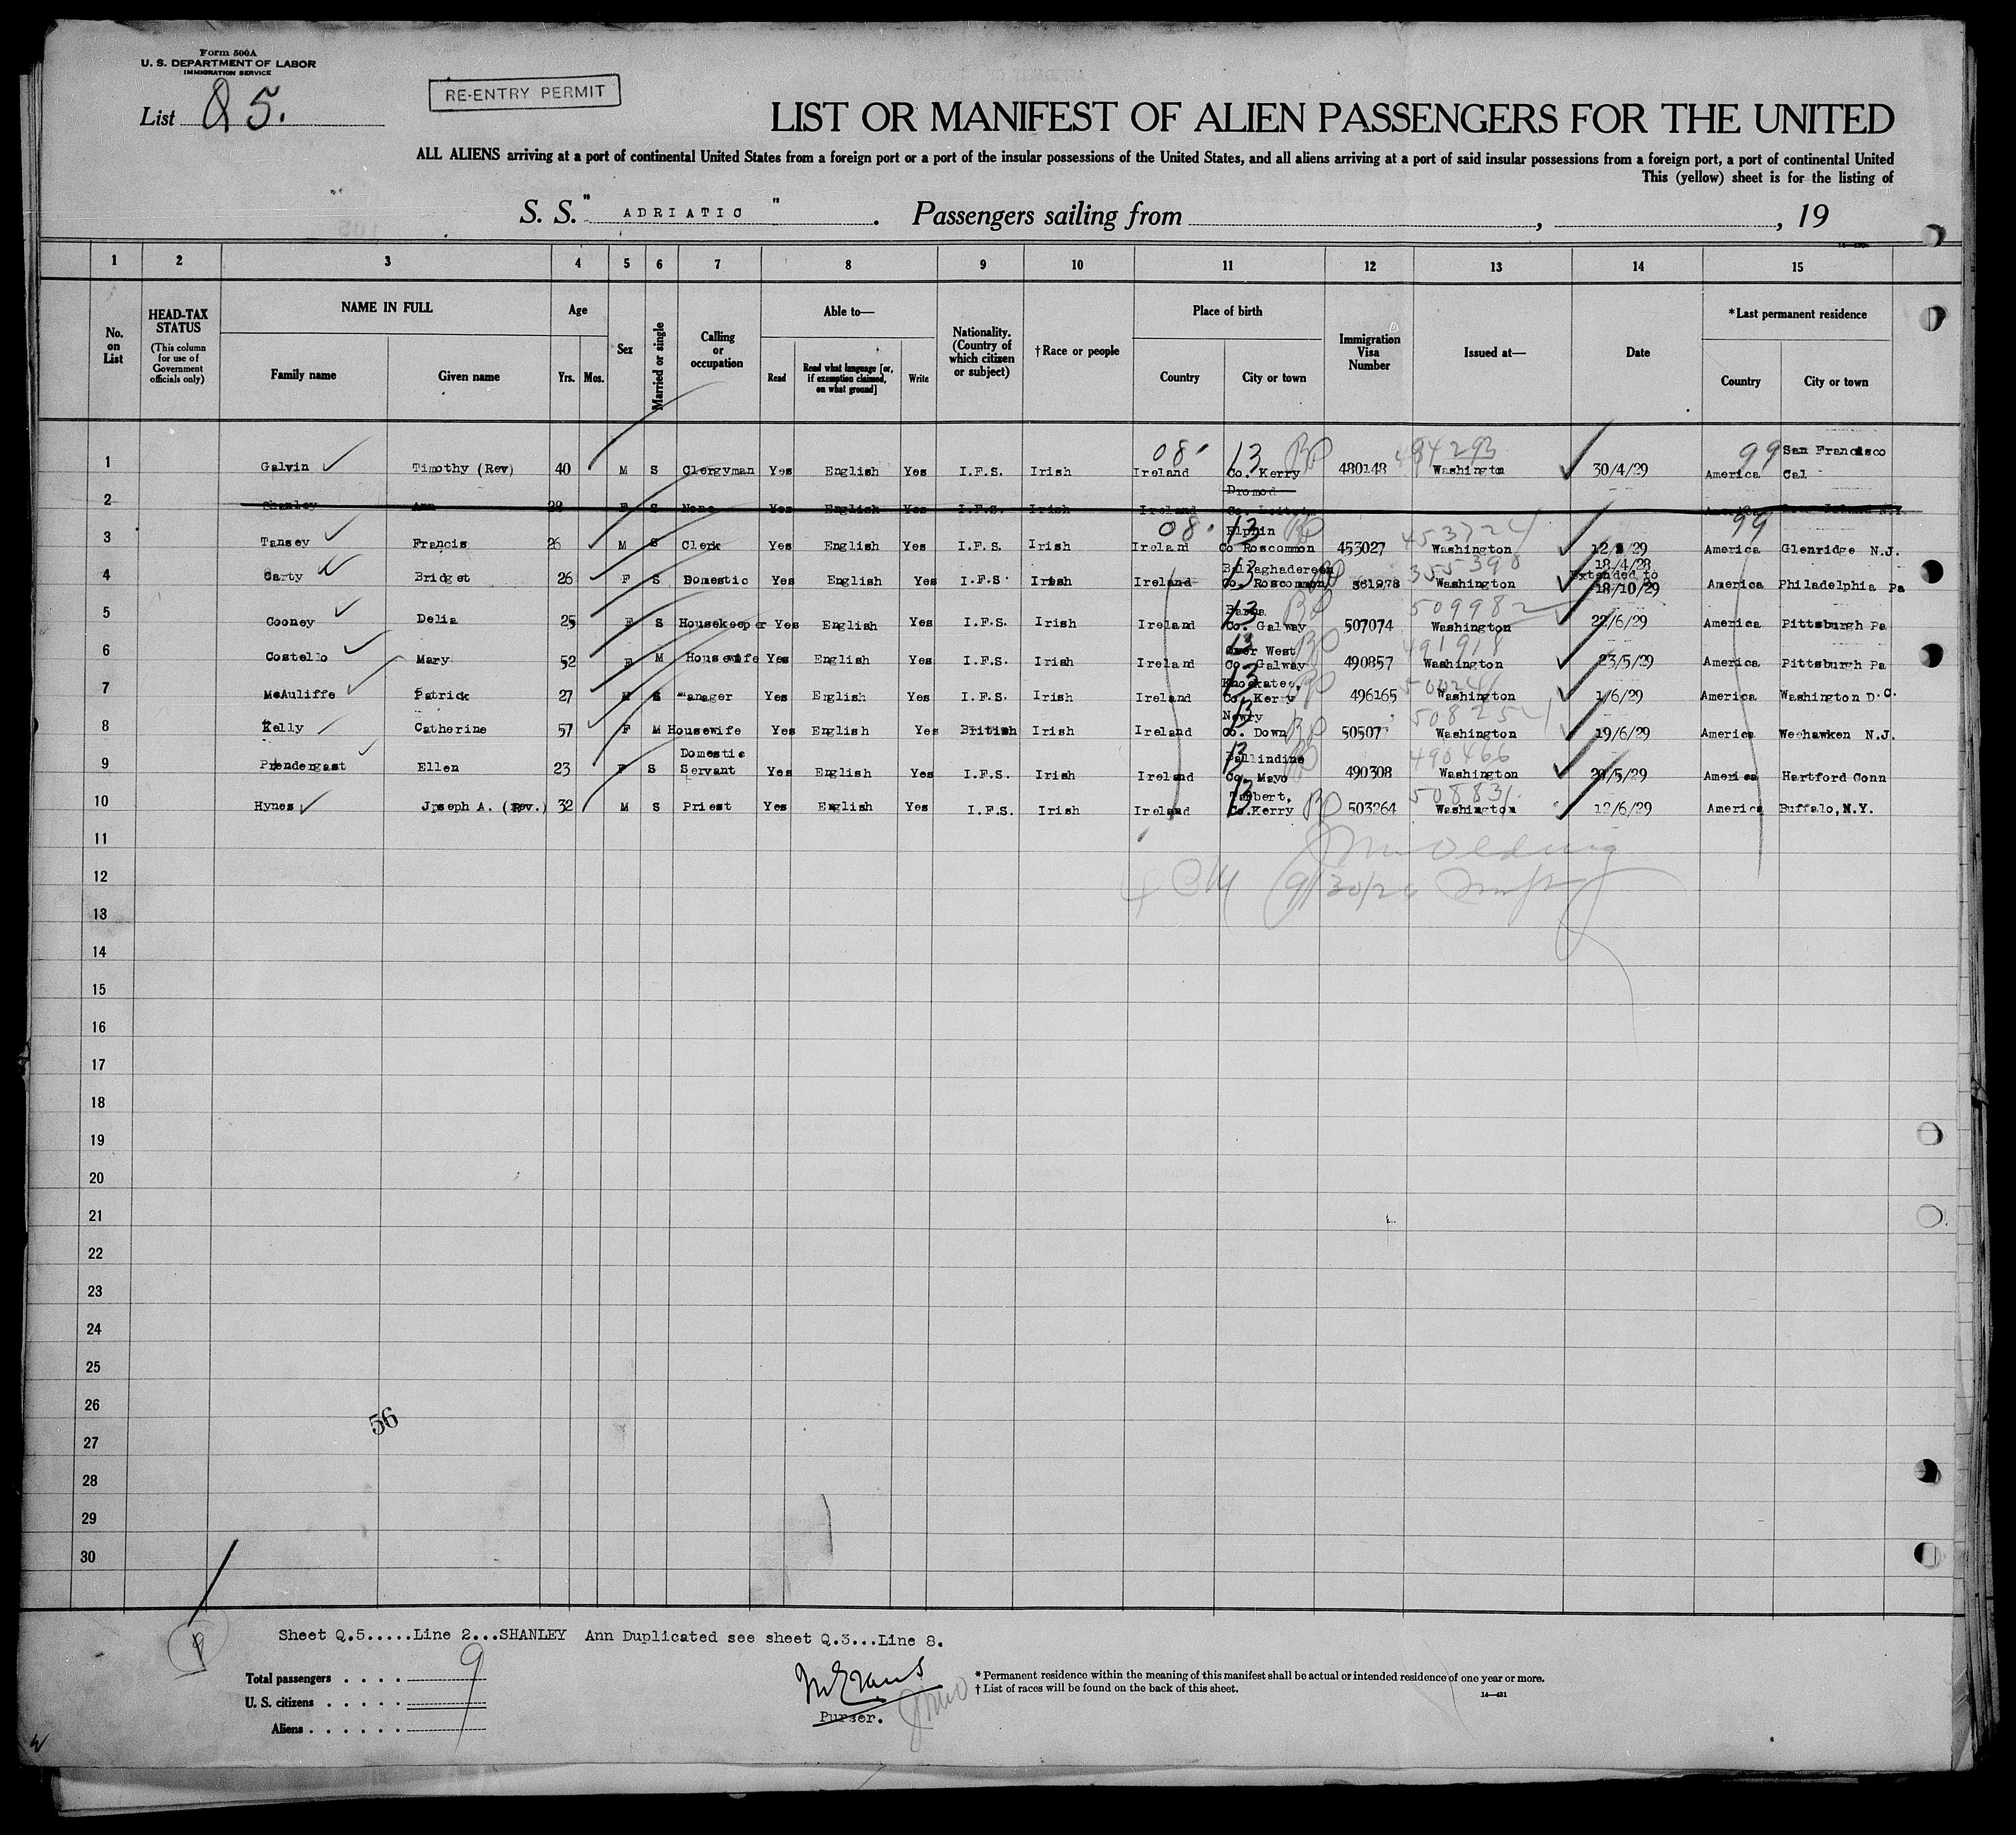 Form 500A
U. S. DEPARTMENT OF LABOR
IMMIGRATION SERVICE
List Q 5.
RE-ENTRY PERMIT
LIST OR MANIFEST OF ALIEN PASSENGERS FOR THE UNITED
ALL ALIENS arriving at a port of continental United States from a foreign port or a port of the insular possessions of the United States, and all aliens arriving at a port of said insular possessions from a foreign port, a port of continental United
This (yellow) sheet is for the listing of
S. S. "ADRIATIC". Passengers sailing from , , 19
1 2 3 4 5 6 7 8 9 10 11 12 13 14 15
No. on List HEAD-TAX STATUS (This column for use of Government officials only) NAME IN FULL Family name Given name Age Yrs. Mos. Sex Married or single Calling or occupation Able to— Read Read what language [or, if exemption claimed, on what ground] Write Nationality. (Country of which citizen or subject) †Race or people Place of birth Country City or town Immigration Visa Number Issued at— Date *Last permanent residence Country City or town
1 Galvin Timothy (Rev) 40 M S Clergyman Yes English Yes I.F.S. Irish 08 Ireland 13 Co. Kerry 480148 484293 Washington 30/4/29 99 America San Francisco Cal
2 Shanley Ann 28 F S None Yes English Yes I.F.S. Irish Ireland Dromod Co. Leitrim
3 Tansey Francis 26 M S Clerk Yes English Yes I.F.S. Irish 08 Ireland 13 Elphin Co Roscommon 453027 Washington 99 America Glenridge N.J.
4 Carty Bridget 26 F S Domestic Yes English Yes I.F.S. Irish Ireland 13 Ballaghadereen Co. Roscommon 361978 355390 Washington 18/4/28 Extended to 18/10/29 America Philadelphia Pa
5 Cooney Delia 25 F S Housekeeper Yes English Yes I.F.S. Irish Ireland 13 Co. Galway 507074 509982 Washington 22/6/29 America Pittsburgh Pa
6 Costello Mary 52 F M Housewife Yes English Yes I.F.S. Irish Ireland 13 West Co. Galway 490857 Washington 23/5/29 America Pittsburgh Pa
7 McAuliffe Patrick 27 M S manager Yes English Yes I.F.S. Irish Ireland 13 Co. Kerry 496165 Washington 1/6/29 America Washington D.C.
8 Kelly Catherine 57 F M Housewife Yes English Yes British Irish Ireland 13 Newry Co. Down 50507 Washington 19/6/29 America Weehawken N.J.
9 Prendergast Ellen 23 F S Domestic Servant Yes English Yes I.F.S. Irish Ireland 13 Ballindine Co. Mayo 490308 490466 Washington America Hartford Conn
10 Hynes Joseph A. (Rev.) 32 M S Priest Yes English Yes I.F.S. Irish Ireland 13 Tarbert, Co.Kerry 503264 508831 Washington 12/6/29 America Buffalo, N.Y.
11
12
13
14
15
16
17
18
19
20
21
22
23
24
25
26
56
27
28
29
30
Sheet Q.5.....Line 2...SHANLEY Ann Duplicated see sheet Q.3...Line 8.
Total passengers . . . . 9
U. S. citizens . . . . .
Aliens . . . . . .
Purser.
* Permanent residence within the meaning of this manifest shall be actual or intended residence of one year or more.
† List of races will be found on the back of this sheet.
14—431